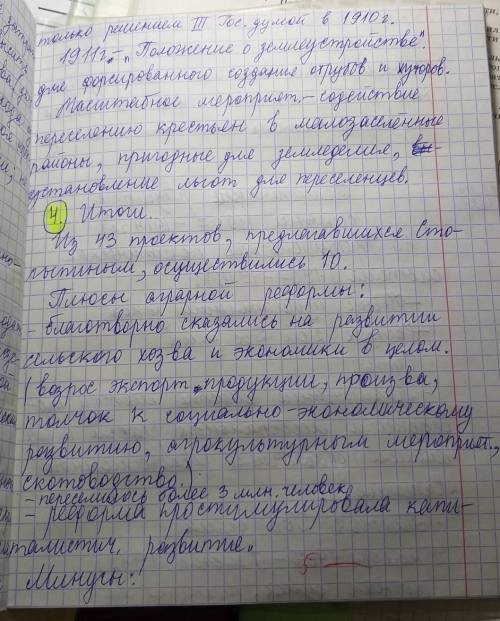 только решением III Гос. думой в 1910 г.
1911 г. – „Положение о землеустройстве".
для форсированного создания отрубов и хуторов.
Масштабное мероприят. – содействие
переселению крестьян в малозаселенные
районы, пригодные для земледелия,
установление льгот для переселенцев.
4. Итоги.
Из 43 проектов, предлагавшихся Сто-
лыпиным, осуществились 10.
Плюсы аграрной реформы:
- благотворно сказались на развитии
сельского хоз-ва и экономики в целом.
(возрос экспорт продукции, произ-ва,
толчок к социально-экономическому
развитию, агрокультурным мероприят.,
скотоводство.)
- переселилось более 3 млн. человек
- реформа простимулировала капи-
талистич. развитие.
Минусы:
5